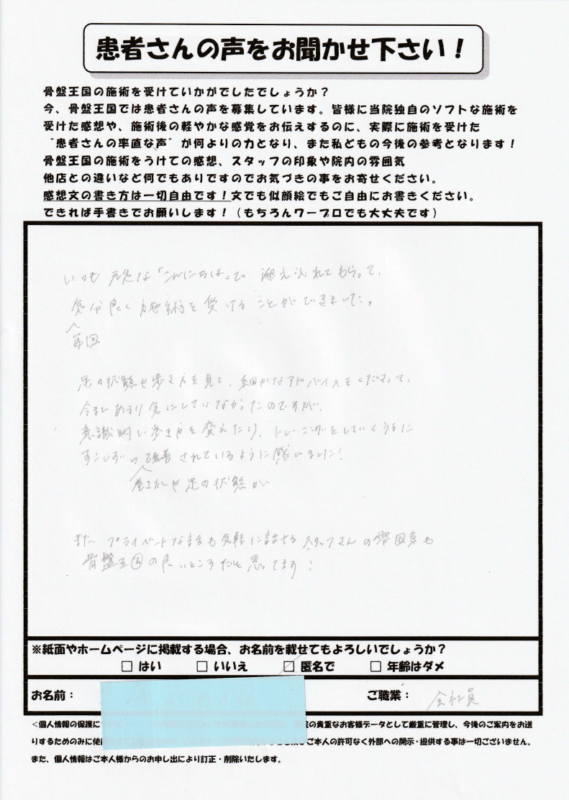 患者さんの声をお聞かせ下さい！
骨盤王国の施術を受けていかがでしたでしょうか？
今、骨盤王国では患者さんの声を募集しています。皆様に当院独自のソフトな施術を
受けた感想や、施術後の軽やかな感覚をお伝えするのに、実際に施術を受けた
“患者さんの率直な声”が何よりの力となり、また私どもの今後の参考となります！
骨盤王国の施術をうけての感想、スタッフの印象や院内の雰囲気
他店との違いなど何でもありですのでお気づきの事をお寄せください。
感想文の書き方は一切自由です！文でも似顔絵でもご自由にお書きください。
できれば手書きでお願いします！（もちろんワープロでも大丈夫です）
いつも元気な「こんにちは」で迎え入れてもらって、
気分良く施術を受けることができました。
毎回
足の状態や歩き方を見て、細かなアドバイスをくださって、
今まであまり気にしていなかったのですが、
意識的に歩き方を変えたり、トレーニングをしていくうちに
すこしずつ改善されているように感じました！
歩き方や足の状態が
また プライベートな話も気軽に話せるスタッフさんの雰囲気も
骨盤王国の良いところだと思ってます！
※紙面やホームページに掲載する場合、お名前を載せてもよろしいでしょうか？
□ はい □ いいえ ☑ 匿名で □ 年齢はダメ
お名前： ご職業： 会社員
＜個人情報の保護に の貴重なお客様データとして厳重に管理し、今後のご案内をお送
りするためのみに使 ご本人の許可なく外部への開示・提供する事は一切ございません。
また、個人情報はご本人様からのお申し出により訂正・削除いたします。